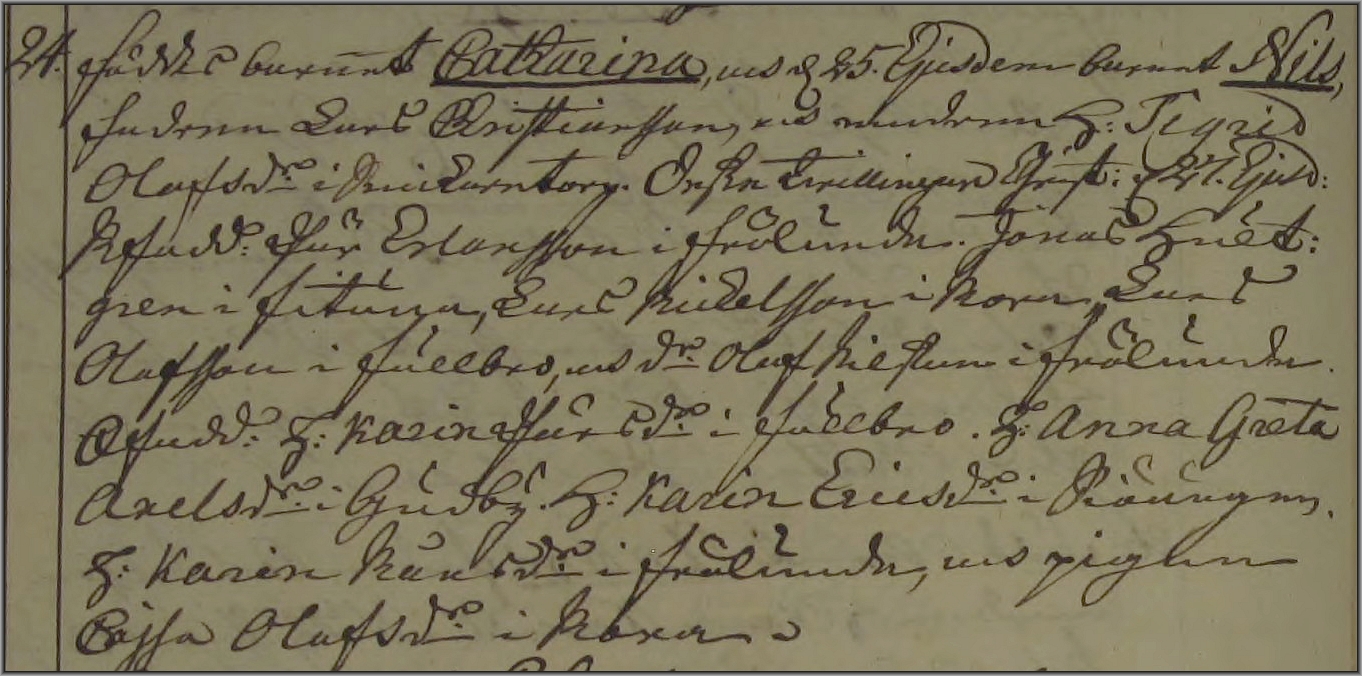 24. föddes barnet Catharina, och d 25. Ejusdem barnet Nils,
fadren Lars Christiansson, och modren H: Sigrid
Olafsdr: i torp. Desse twillingar Christ: d 27. Ejusd:
fadd: Pär Ersson i Frölunda. Jonas Hult:
gren i Fituna, Lars Mickelsson i Mora, Lars
Olofsson i Fullbro, och dr: Olof i Frölunda.
fadd: H: Karin Pärsdr: i Fullbro. H: Anna Greta
Axelsdr: i Gudby. H: Karin Ericsdr: i
H: Karin dr: i Frölunda, och pigan
Cajsa Olofsdr: i Mora